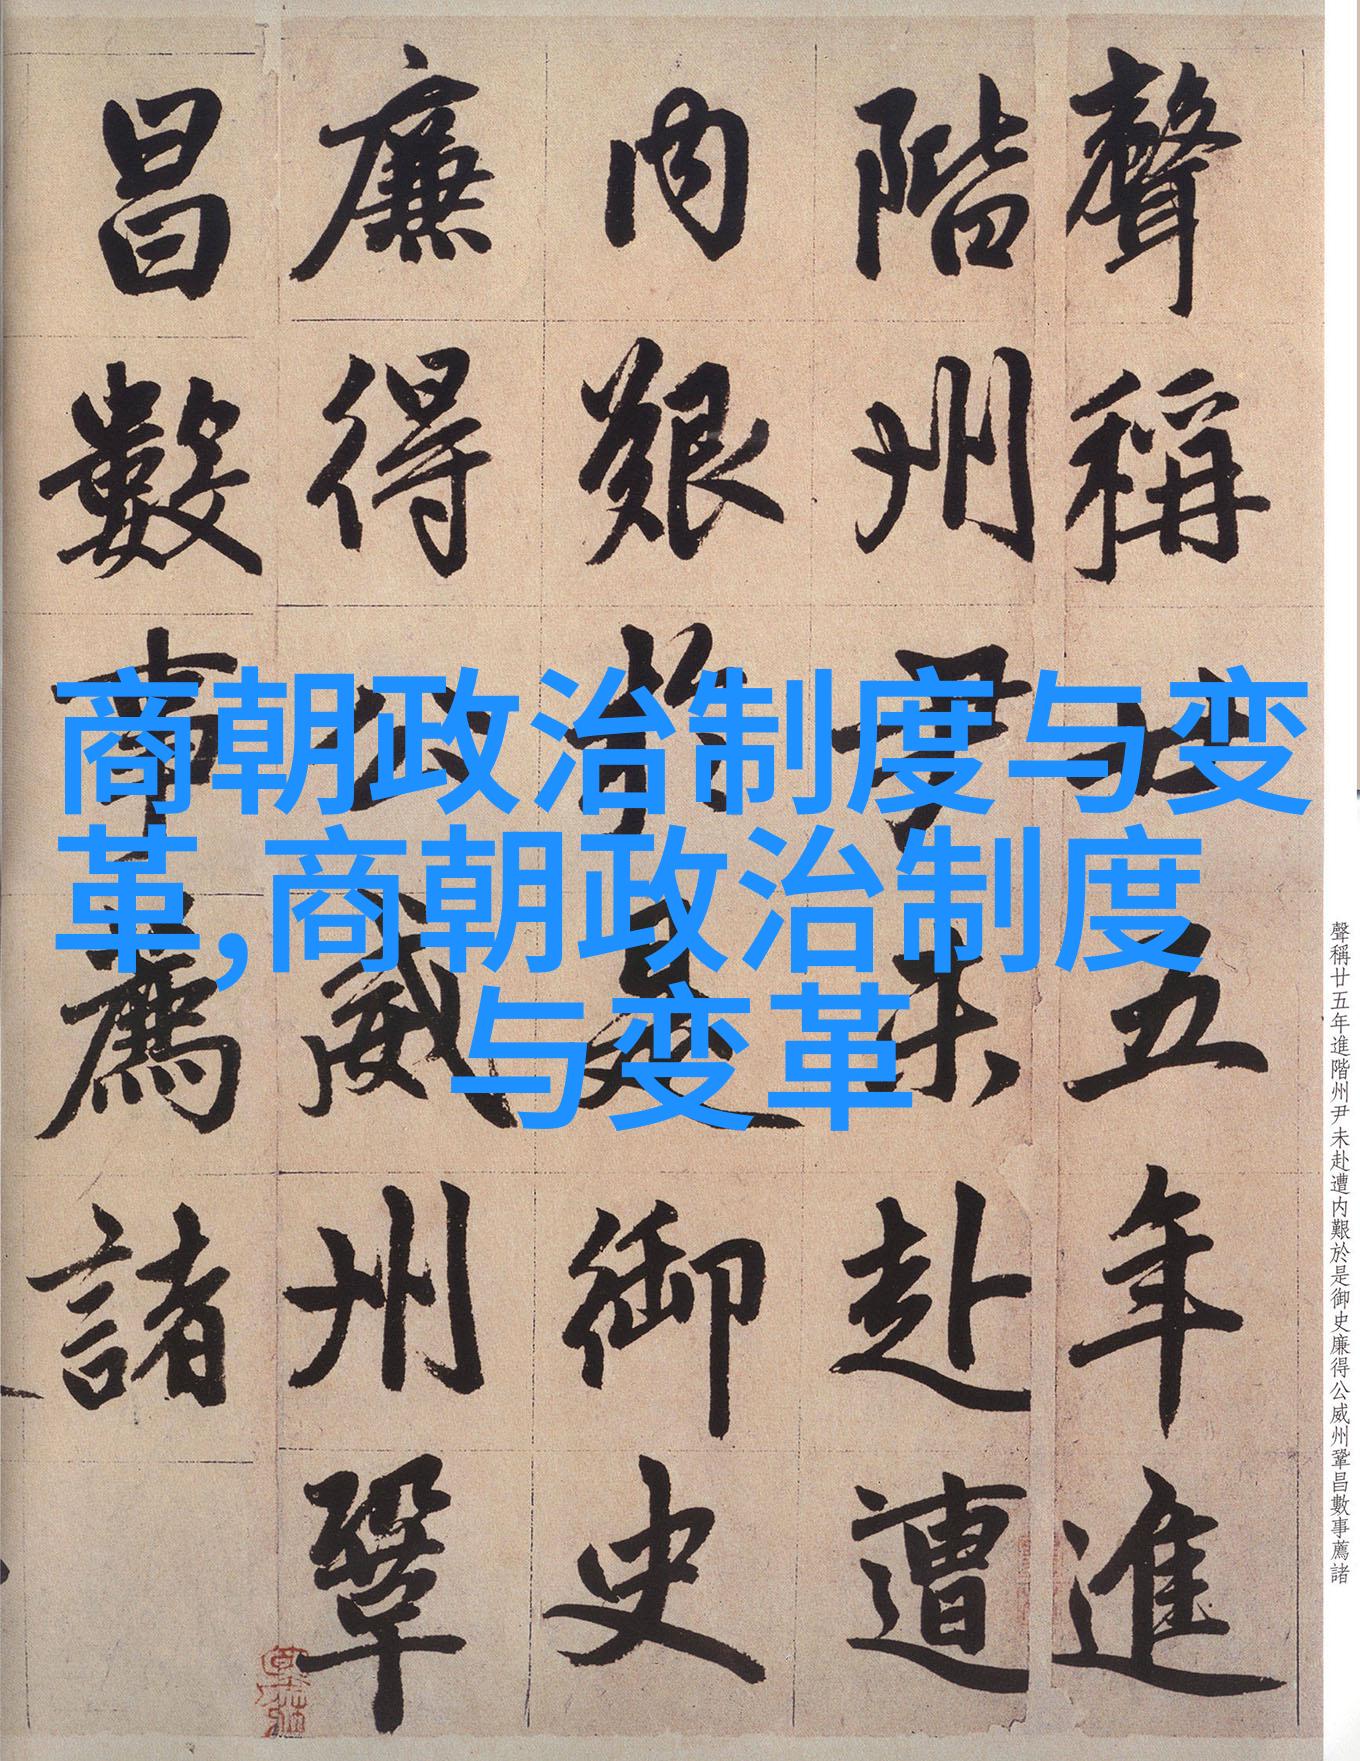 商朝政治制度与变
革,商朝政治制度
与变革
聲稱廿五年進
階州尹未赴遭
内艱於是御史
廉得公威州鞏
昌數事薦諸
聲稱廿五年進階州尹未赴遭内艱於是御史廉得公威州鞏昌數事薦諸